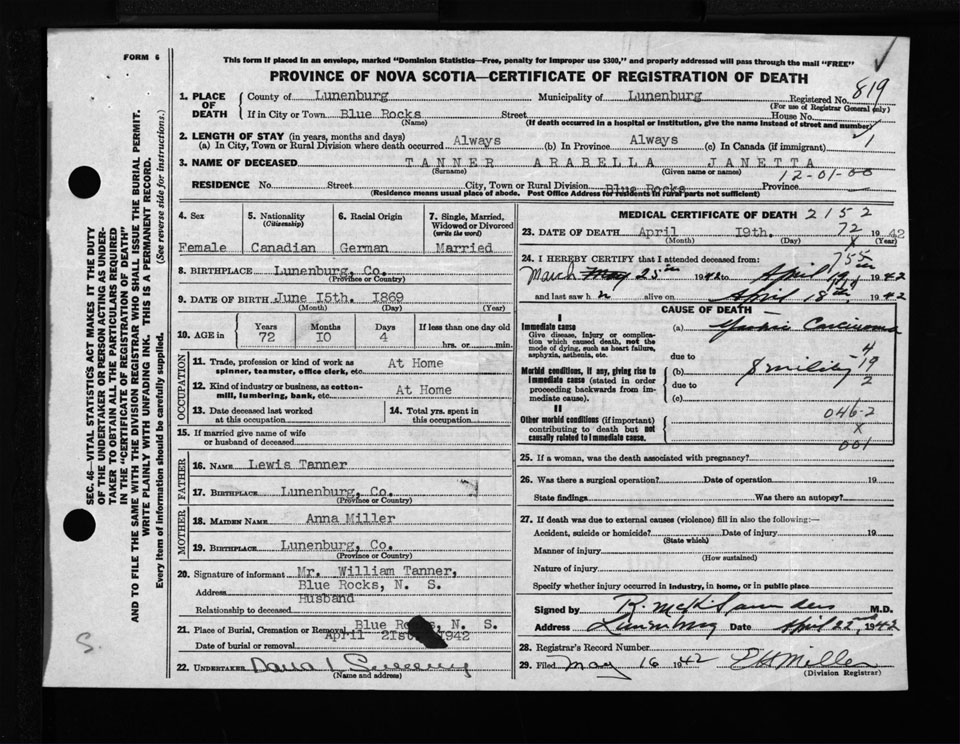 FORM 6
This form if placed in an envelope, marked "Dominion Statistics—Free, penalty for improper use $300," and properly addressed will pass through the mail "FREE"
PROVINCE OF NOVA SCOTIA—CERTIFICATE OF REGISTRATION OF DEATH
819
1. PLACE OF DEATH County of Lunenburg Municipality of Lunenburg Registered No.
(For use of Registrar General only)
If in City or Town Blue Rocks Street House No.
(Name) (If death occurred in a hospital or institution, give the name instead of street and number)
2. LENGTH OF STAY (in years, months and days)
(a) In City, Town or Rural Division where death occurred Always (b) In Province Always (c) In Canada (if immigrant) 1
3. NAME OF DECEASED TANNER ARABELLA JANETTA
(Surname) (Given name or names)
12-01-00
RESIDENCE No. Street City, Town or Rural Division Blue Rocks Province
(Residence means usual place of abode. Post Office Address for Residents in rural parts not sufficient)
4. Sex Female
5. Nationality (Citizenship) Canadian
6. Racial Origin German
7. Single, Married, Widowed or Divorced (write the word) Married
8. BIRTHPLACE Lunenburg, Co.
(Province or Country)
9. DATE OF BIRTH June I5th. I869
(Month) (Day) (Year)
10. AGE in Years 72 Months IO Days 4 If less than one day old hrs. or min.
OCCUPATION
11. Trade, profession or kind of work as spinner, teamster, office clerk, etc. At Home
12. Kind of industry or business, as cotton-mill, lumbering, bank, etc. At Home
13. Date deceased last worked at this occupation
14. Total yrs. spent in this occupation
15. If married give name of wife or husband of deceased
FATHER
16. NAME Lewis Tanner
17. BIRTHPLACE Lunenburg, Co.
(Province or Country)
MOTHER
18. MAIDEN NAME Anna Miller
19. BIRTHPLACE Lunenburg, Co.
(Province or Country)
20. Signature of informant Mr. William Tanner,
Address Blue Rocks, N. S.
Relationship to deceased Husband
21. Place of Burial, Cremation or Removal Blue Rocks, N. S.
Date of burial or removal April 21st 1942
22. UNDERTAKER
(Name and address)
MEDICAL CERTIFICATE OF DEATH 2152
23. DATE OF DEATH April I9th. 72 1942
(Month) (Day) X (Year)
24. I HEREBY CERTIFY that I attended deceased from: 755
March May 25th 1942 to April 19th 1942
and last saw h alive on April 18th 1942
CAUSE OF DEATH
I
Immediate cause
Give disease, injury or complication which caused death, not the mode of dying, such as heart failure, asphyxia, asthenia, etc.
(a) Carcinoma
due to 4
Morbid conditions, if any, giving rise to immediate cause (stated in order proceeding backwards from immediate cause).
(b) 19
due to 2
(c)
II
Other morbid conditions (if important) contributing to death but not causally related to immediate cause.
046-2
X
001
25. If a woman, was the death associated with pregnancy?
26. Was there a surgical operation? Date of operation 19
State findings Was there an autopsy?
27. If death was due to external causes (violence) fill in also the following:—
Accident, suicide or homicide? Date of injury 19
(State which)
Manner of injury
(How sustained)
Nature of injury
Specify whether injury occurred in industry, in home, or in public place
Signed by R. McK Saunders M.D.
Address Lunenburg Date April 22nd, 1942
28. Registrar's Record Number
29. Filed May 16 1942 E H Miller
(Division Registrar)
SEC. 46—VITAL STATISTICS ACT MAKES IT THE DUTY
OF THE UNDERTAKER OR PERSON ACTING AS UNDER-
TAKER TO OBTAIN ALL THE PARTICULARS REQUIRED
IN THE "CERTIFICATE OF REGISTRATION OF DEATH"
AND TO FILE THE SAME WITH THE DIVISION REGISTRAR WHO SHALL ISSUE THE BURIAL PERMIT.
WRITE PLAINLY WITH UNFADING INK. THIS IS A PERMANENT RECORD.
Every item of information should be carefully supplied. (See reverse side for instructions.)
S.